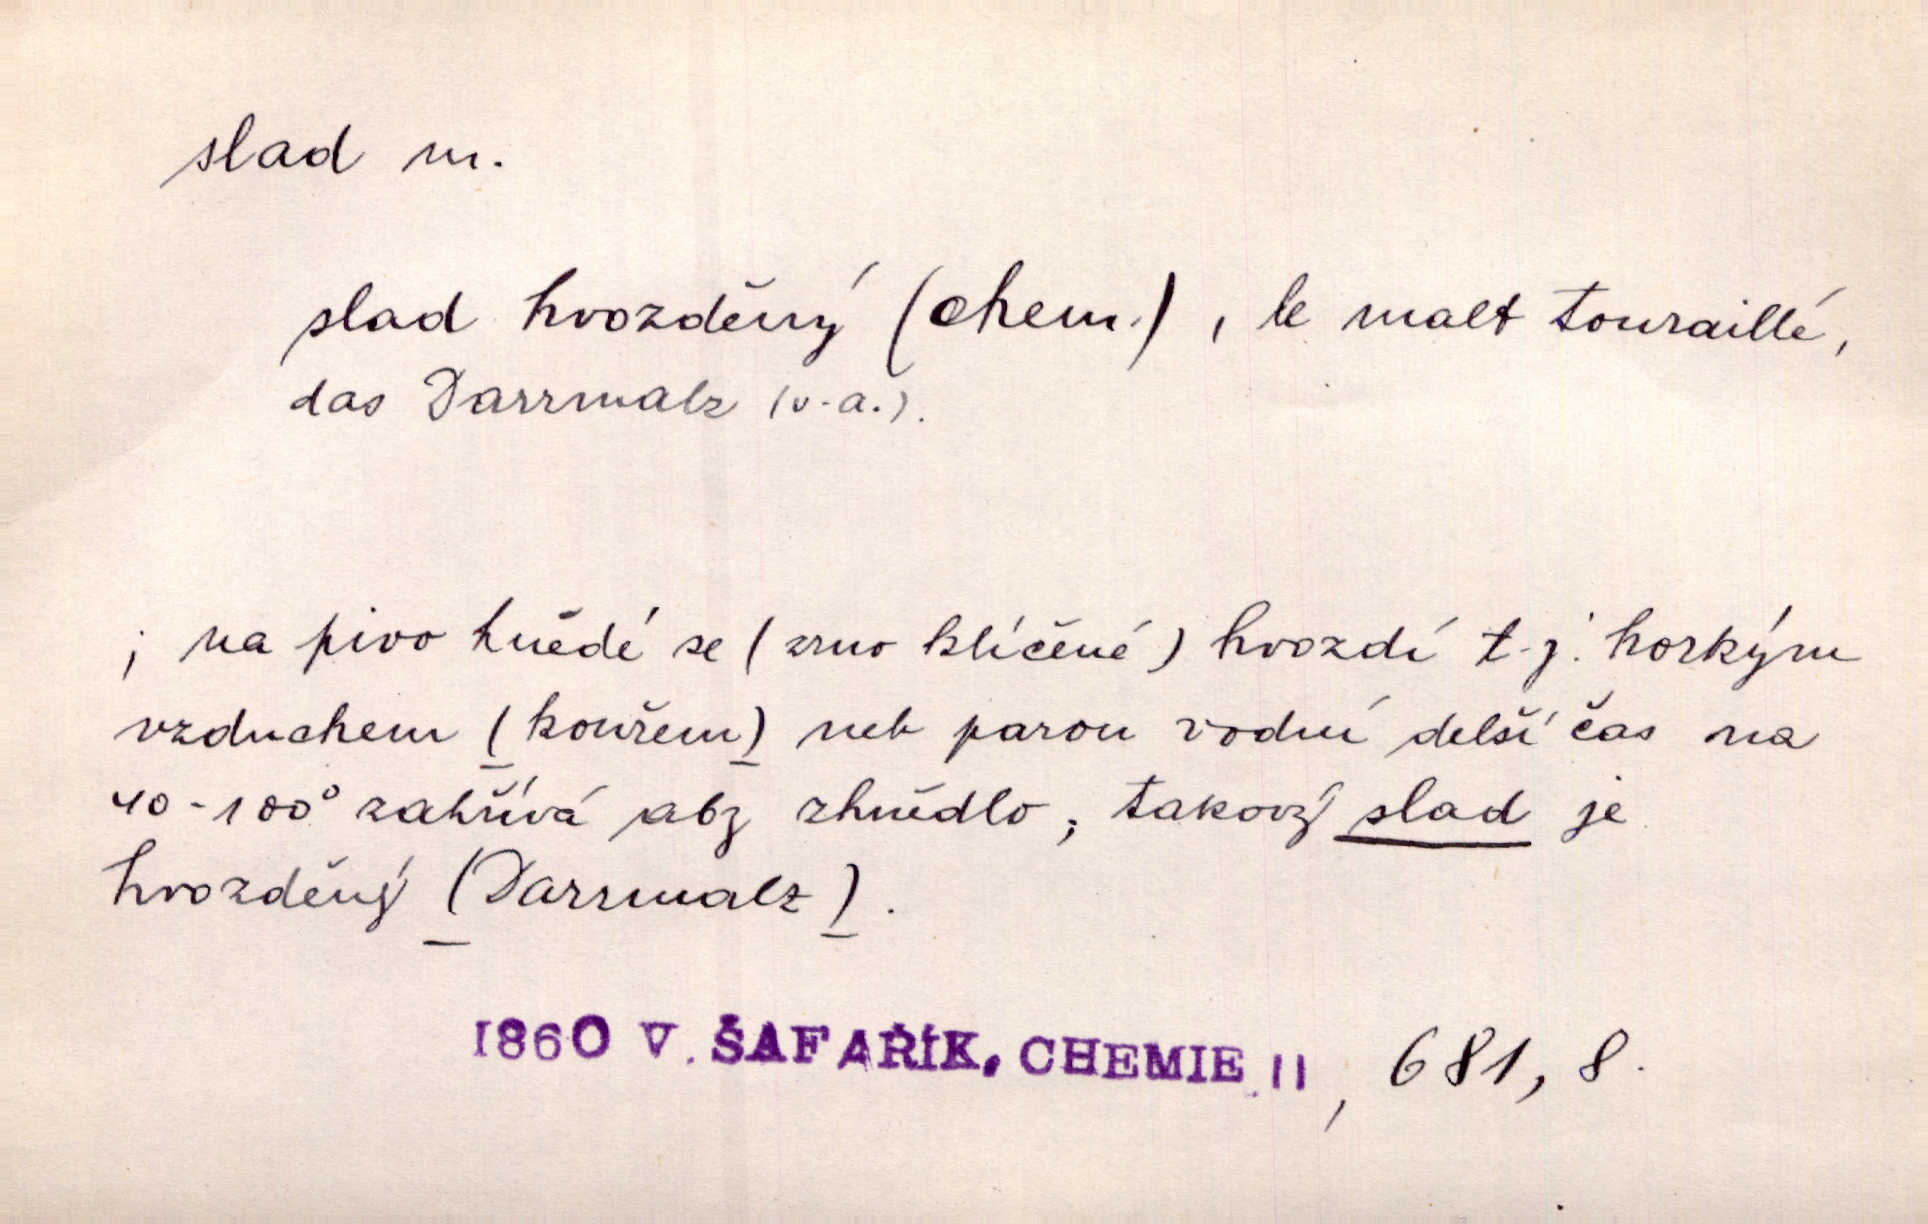 slad m.
slad hvozděný (chem.), le malt touraillé,
das Darrmalz (v. a.).
; na pivo hnědé se (zrno klíčené) hvozdí t. j. horkým
vzduchem (kouřem) neb parou vodní delší čas na
40-100° zahřívá aby zhnědlo; takový slad je
hvozděný (Darrmalz).
1860 V. ŠAFAŘÍK, CHEMIE II, 681, 8.